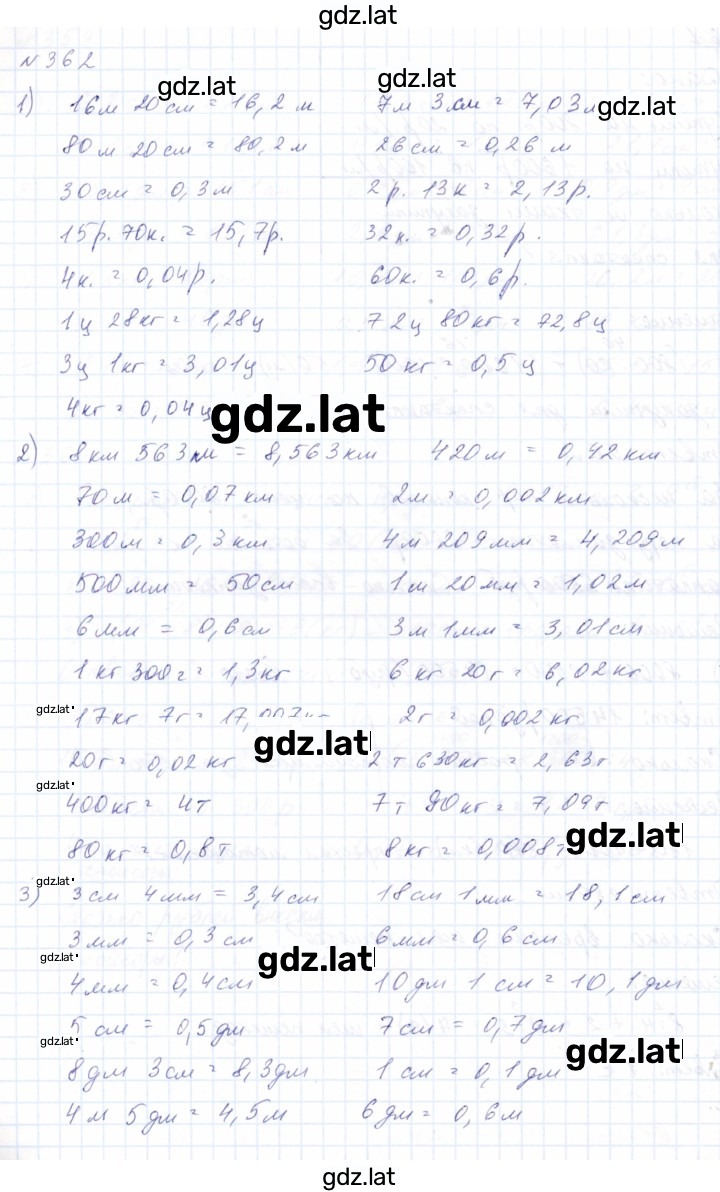 gdz.lat
№362
gdz.lat gdz.lat
1) 16м 20см = 16,2 м 7м 3см = 7,03м gdz.lat
80м 20см = 80,2м 26см = 0,26 м
30см = 0,3м 2р. 13к = 2,13р.
15р. 70к. = 15,7р. 32к. = 0,32р.
4к. = 0,04р. 60к. = 0,6р.
1ц 28кг = 1,28ц 72ц 80кг = 72,8ц
3ц 1кг = 3,01ц 50кг = 0,5ц
4кг = 0,04ц gdz.lat
2) 8км 563м = 8,563км 420м = 0,42км
70м = 0,07км 2м = 0,002км
300м = 0,3км 4м 209мм = 4,209м
500мм = 50см 1м 20мм = 1,02м
6мм = 0,6см 3м 1мм = 3,01см
1кг 300г = 1,3кг 6кг 20г = 6,02кг
gdz.lat 17кг 7г = 17,007кг 2г = 0,002кг
gdz.lat
20г = 0,02кг 2т 630кг = 2,63т
gdz.lat
400кг = 4т 7т 90кг = 7,09т
gdz.lat
80кг = 0,8т 8кг = 0,008т
gdz.lat
3) 3см 4мм = 3,4см 18см 1мм = 18,1см
3мм = 0,3см 6мм = 0,6см
gdz.lat gdz.lat
4мм = 0,4см 10дм 1см = 10,1дм
5см = 0,5дм 7см = 0,7дм
gdz.lat gdz.lat
8дм 3см = 8,3дм 1см = 0,1дм
4м 5дм = 4,5м 6дм = 0,6м
gdz.lat